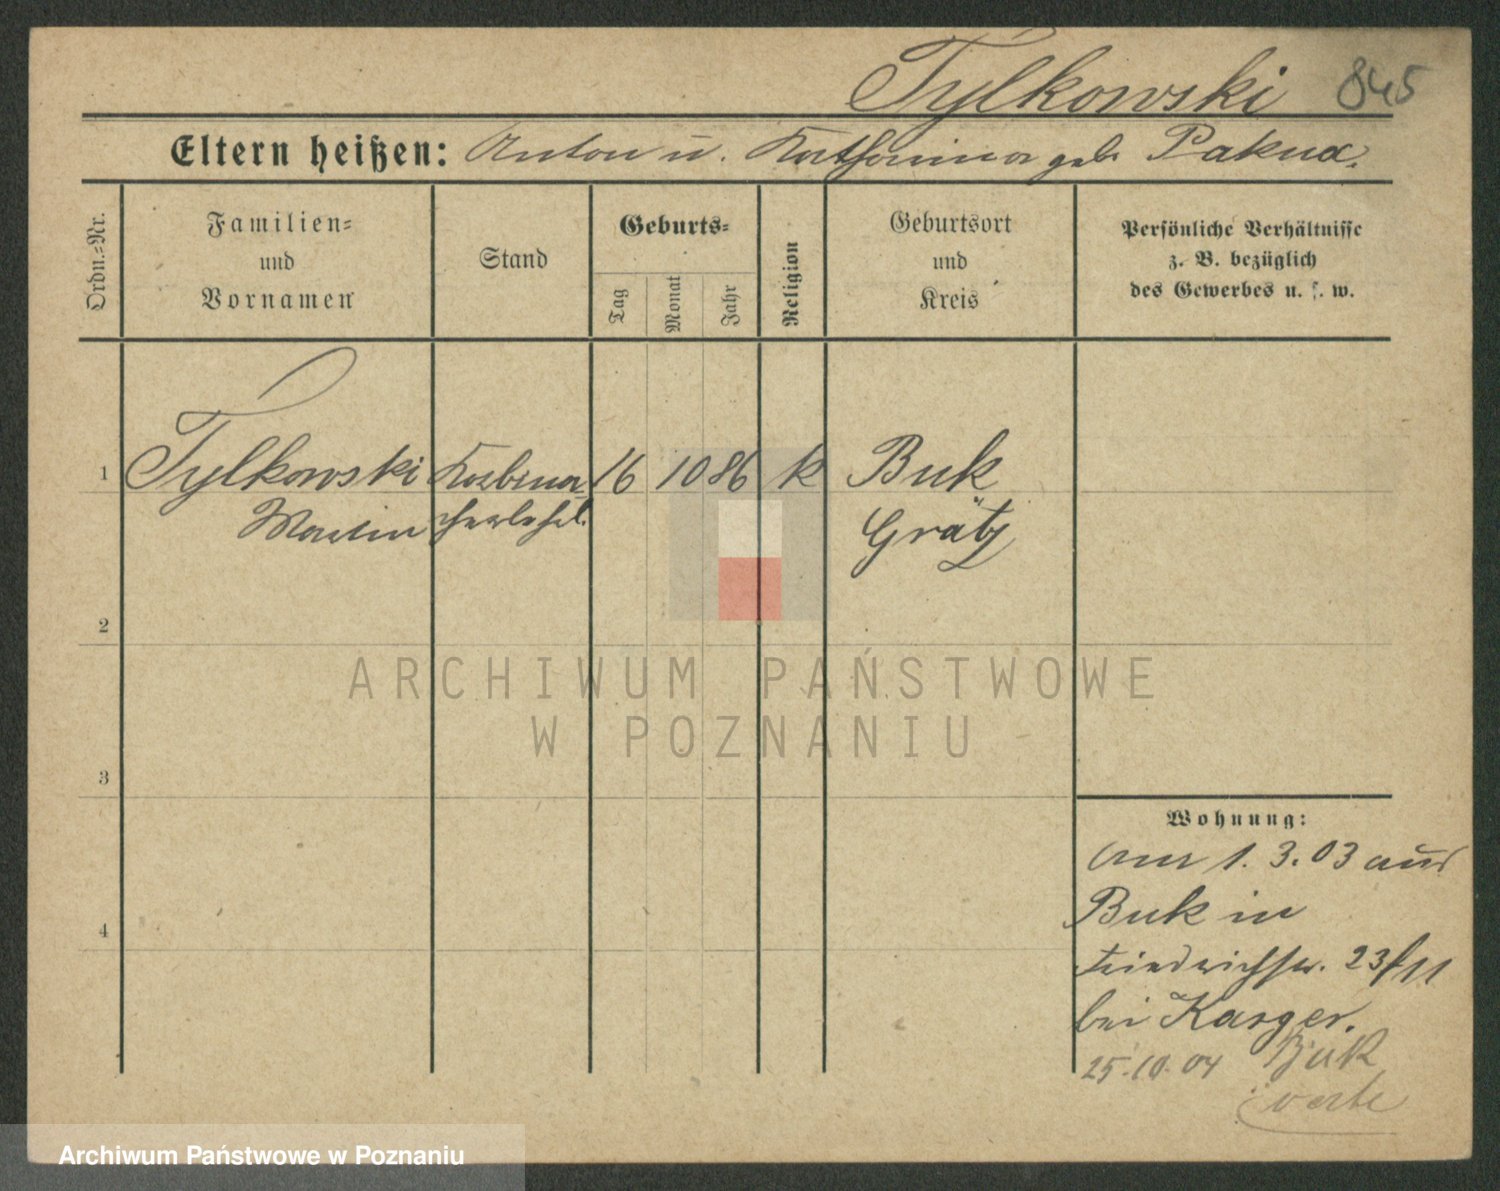 Tylkowski 845
Eltern heißen: Anton u. Katharina geb. Pakua.
Ordn.-Nr.
Familien-
und
Vornamen
Stand
Geburts-
Tag
Monat
Jahr
Religion
Geburtsort
und
Kreis
Persönliche Verhältnisse
z. B. bezüglich
des Gewerbes u. s. w.
1 Tylkowski 16 10 86 k Buk
Martin Grätz
2
3
4
Wohnung:
am 1. 3. 03 aus
Buk in
Friedrichstr. 23/11
bei Karger.
25.10.04 Buk
verte
ARCHIWUM PAŃSTWOWE
W POZNANIU
Archiwum Państwowe w Poznaniu